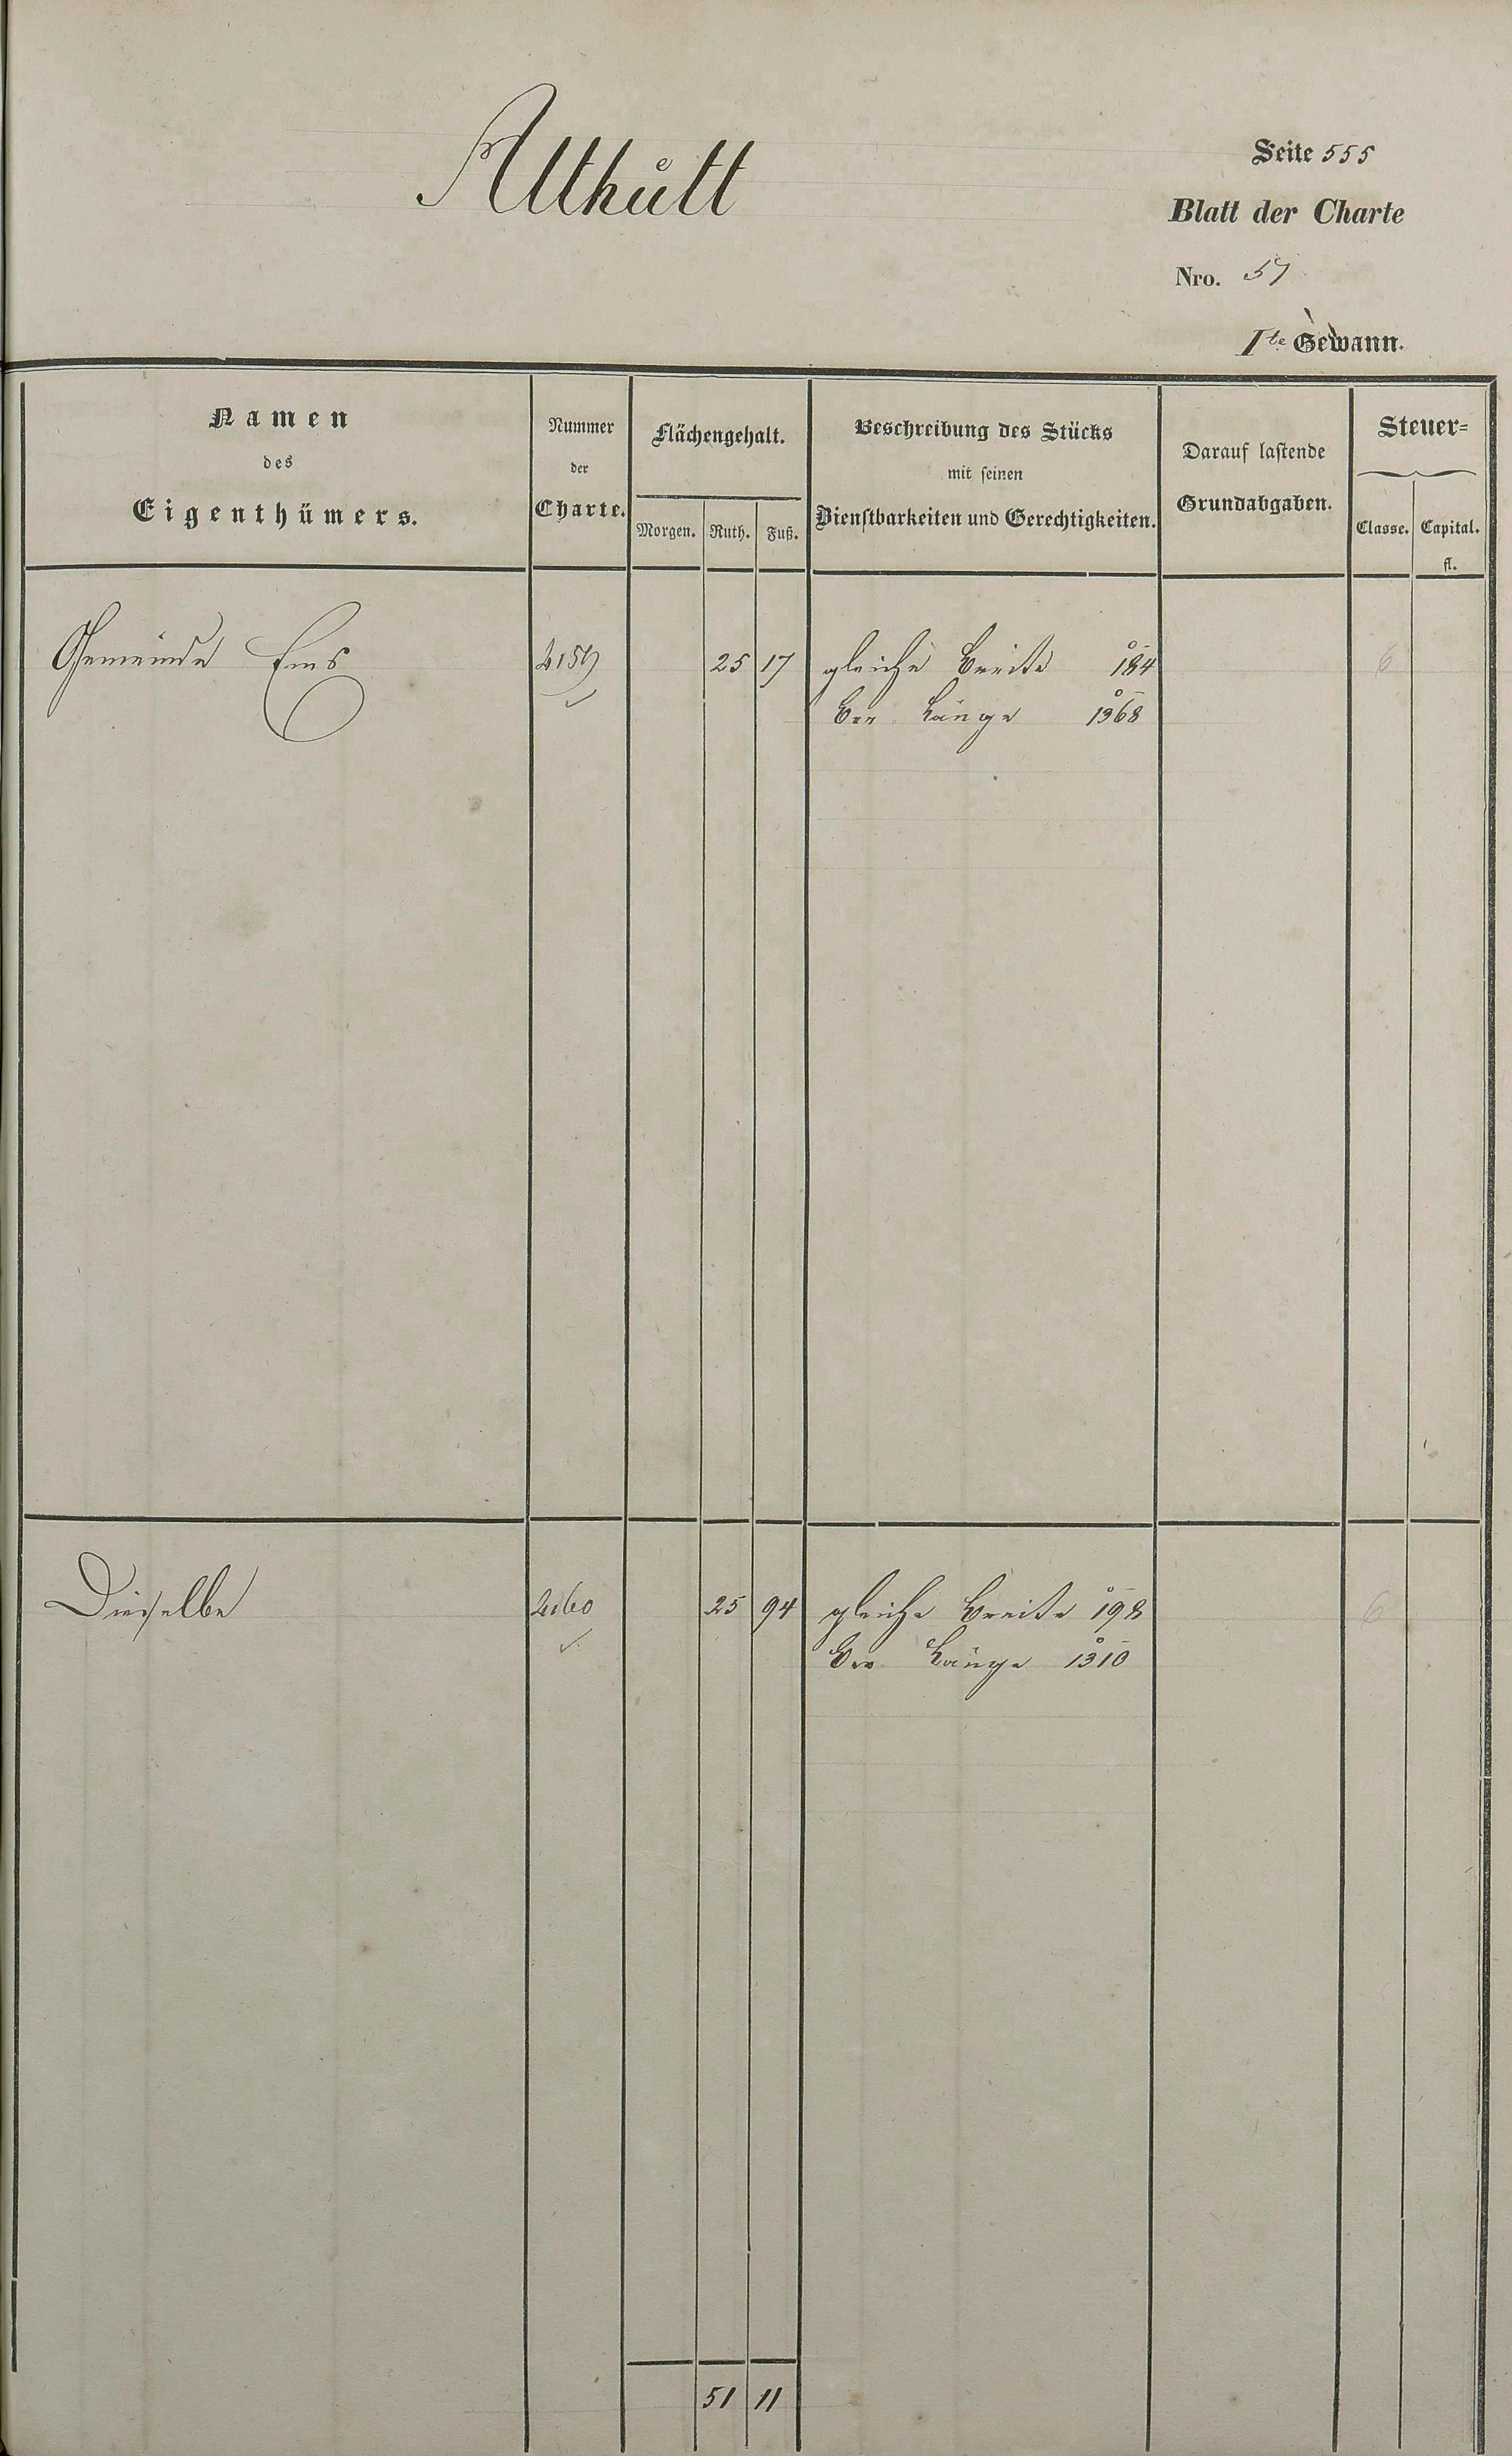 Althütt
Seite 555
Blatt der Charte
Nro. 57
Ite Gewann.
Namen
des
Eigenthümers.
Nummer
der
Charte.
Flächengehalt.
Morgen. Ruth. Fuß.
Beschreibung des Stücks
mit seinen
Dienstbarkeiten und Gerechtigkeiten.
Darauf lastende
Grundabgaben.
Steuer-
Classe. Capital.
fl.
Gemeinde Ems 4159 25 17 gleiche Breite 184 6
Länge 1368
Dieselbe 4160 25 94 gleiche Breite 198 6
Länge 1310
51 11